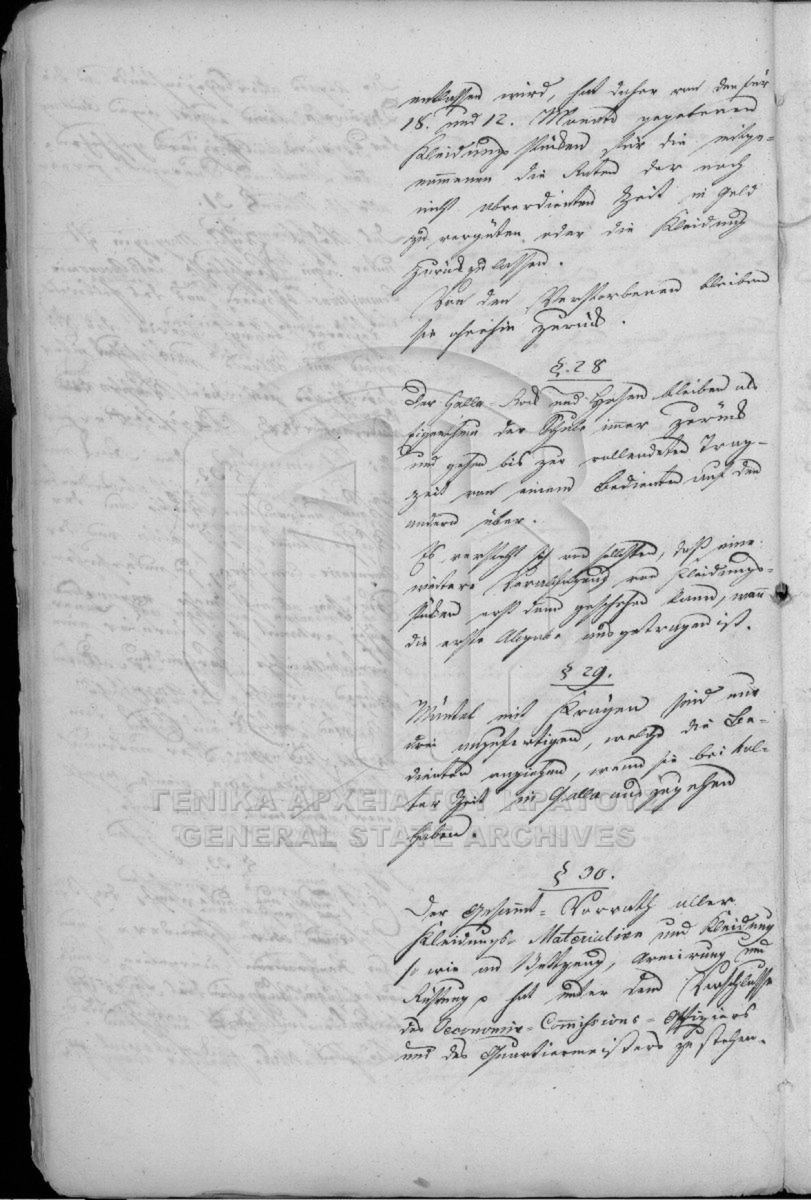 entlassen wird, hat daher von den für
18. und 12. Monate gegebenen
Kleidungsstücken für die mitge-
nommenen die Raten der noch
nicht abverdienten Zeit in Geld
zu vergüten oder die Kleidung
zurückzulassen.
Von den Verstorbenen bleiben
sie ohnehin zurück.
§. 28
Der Galla-Rock und Hosen bleiben als
Eigenthum der Schule immer zurück
und gehen bis zur vollendeten Trag-
zeit von einem Bedienten auf den
andern über.
Es versteht sich von selbsten, daß eine
weitere Verabfolgung von Kleidungs-
stücken erst dann geschehen kann, wenn
die erste Abgabe ausgetragen ist.
§ 29.
Mäntel mit Krägen sind nur
drei anzufertigen, welche die Be-
dienten anziehen, wenn sie bei kal-
ter Zeit in Galla auszugehen
haben.
§ 30.
Der Gesammt-Vorrath aller
Kleidungs-Materialien und Kleidung
so wie an Bettzeug, Armirung und
Rüstung hat unter dem Verschlusse
des Oeconomie-Commissions-Offiziers
und des Quartiermeisters zu stehen.
ΓΕΝΙΚΑ ΑΡΧΕΙΑ ΤΟΥ ΚΡΑΤΟΥΣ
GENERAL STATE ARCHIVES